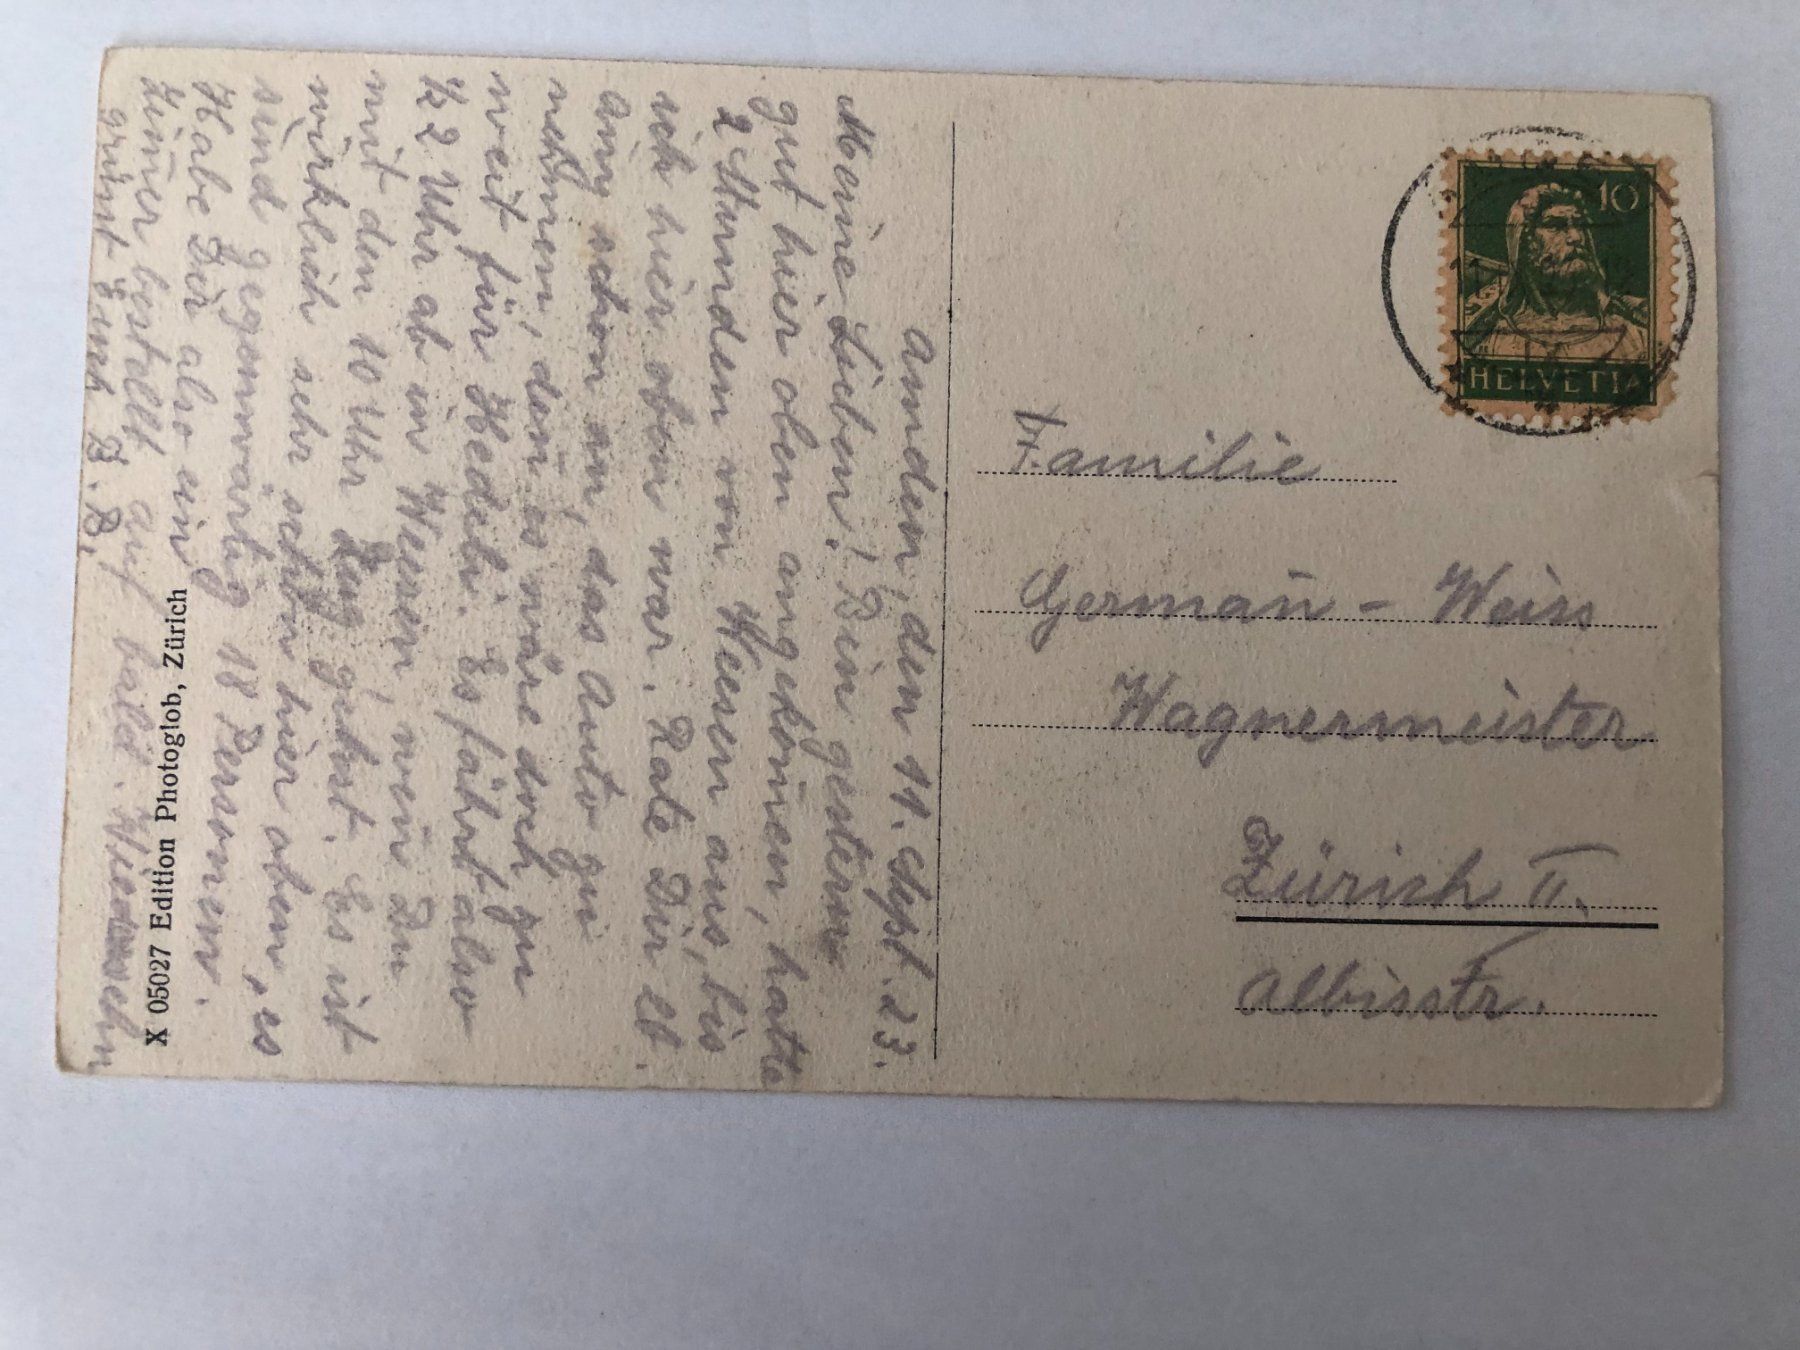 Amden, den 11. Sept. 23.
Meine Lieben! Bin gestern
gut hier oben angekom̄en, hatte
2 Stunden von Weesen aus, bis
ich hier oben war. Rate Dir lb.
Amy schon an, das Auto zu
nehmen, den̄ es wäre doch zu
weit für Hedeli. Es fährt also
½ 2 Uhr ab in Weesen, wen̄ Du
mit den 10 Uhr Zug gehst. Es ist
wirklich sehr schön hier oben, es
sind gegenwärtig 18 Personen.
Habe Dir also ein
Zim̄er bestellt auf bald. Wiedersehn
grüsst Euch B. B.
X 05027 Edition Photoglob, Zürich
10
HELVETIA
Familie
German̄ - Weiss
Wagnermeister
Zürich II.
Albisstr.